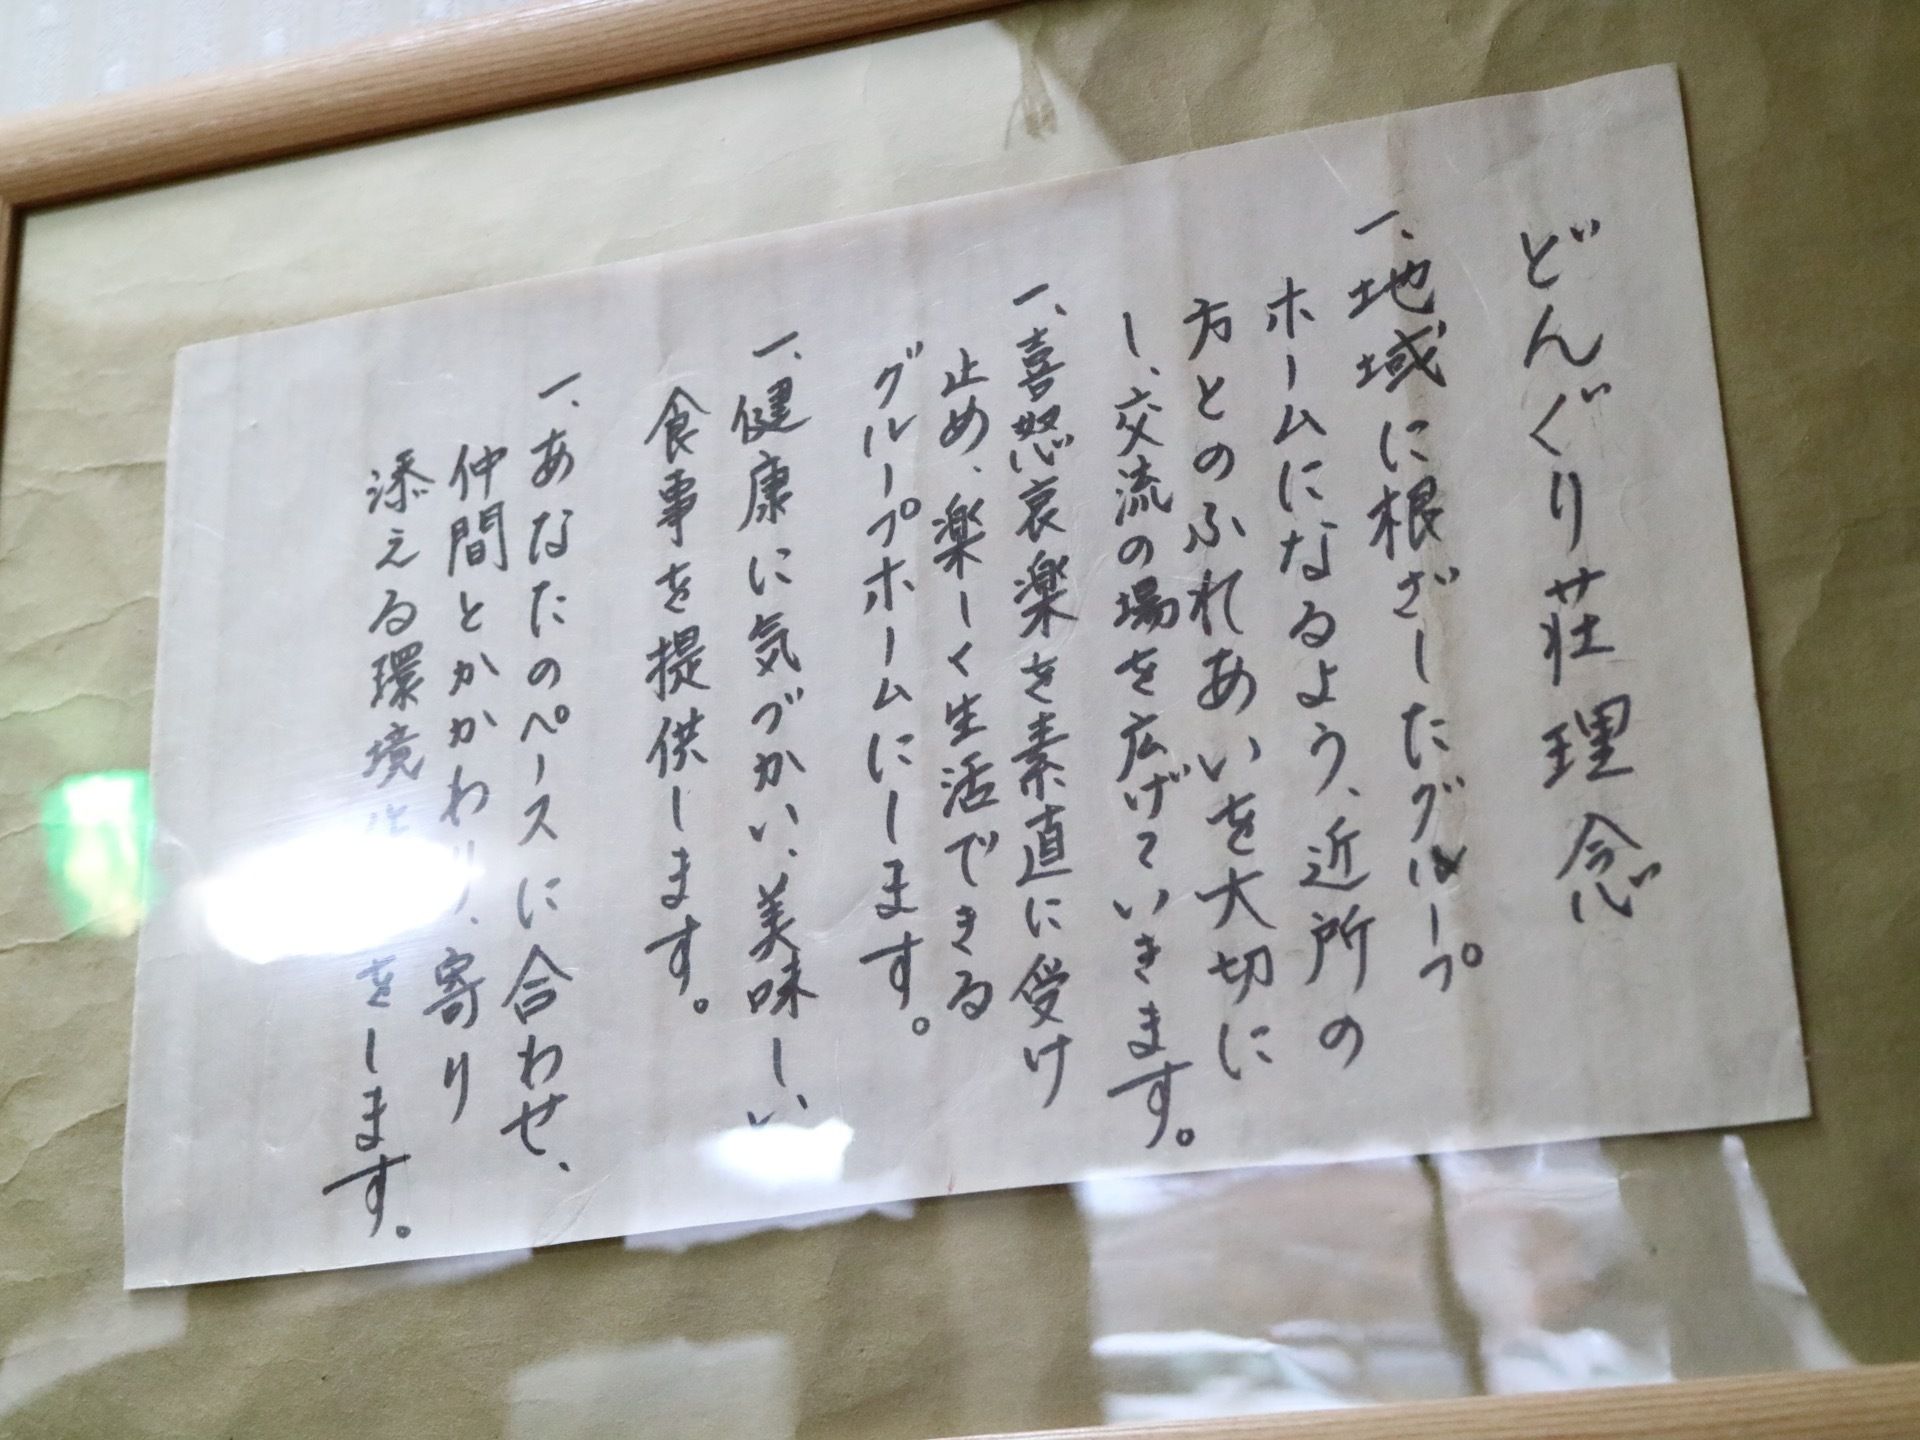 どんぐり荘理念
一、地域に根ざしたグループ
ホームになるよう、近所の
方とのふれあいを大切に
し、交流の場を広げていきます。
一、喜怒哀楽を素直に受け
止め、楽しく生活できる
グループホームにします。
一、健康に気づかい、美味しい
食事を提供します。
一、あなたのペースに合わせ、
仲間とかかわり、寄り
添える環境をします。